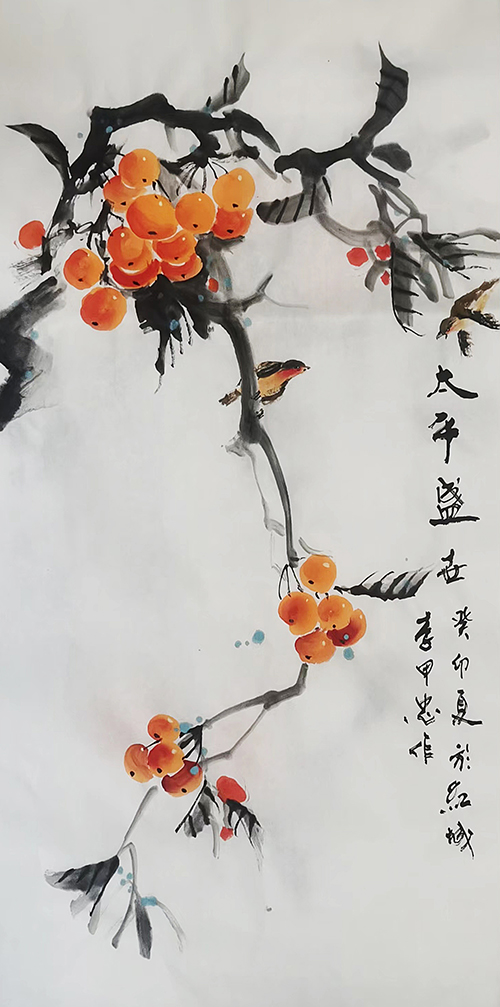 太平盛世
癸卯夏於紅城
李甲忠作